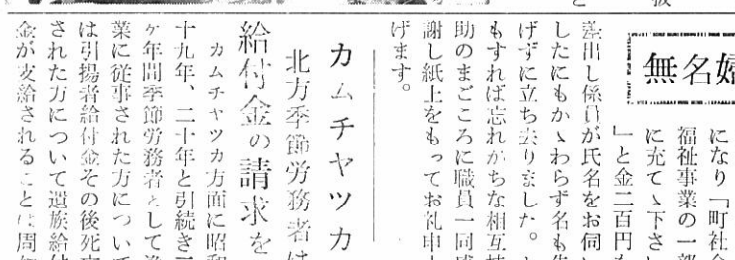 無名
になり「町社
福祉事業の一部
に充てゝ下さ
」と金二百円
差出し係員が氏名をお伺
したにもかゝわらず名も
げずに立ち去りました。
もすれば忘れがちな相互
助のまごころに職員一同
謝し紙上をもってお礼申
げます。
カムチヤツカ
北方季節労務者は
給付金の請求を
カムチャツカ方面に昭和
十九年、二十年と引続き
ケ年間季節労務者として
業に従事された方につい
は引揚者給付金その後死
された方について遺族給付
金が支給されることは周